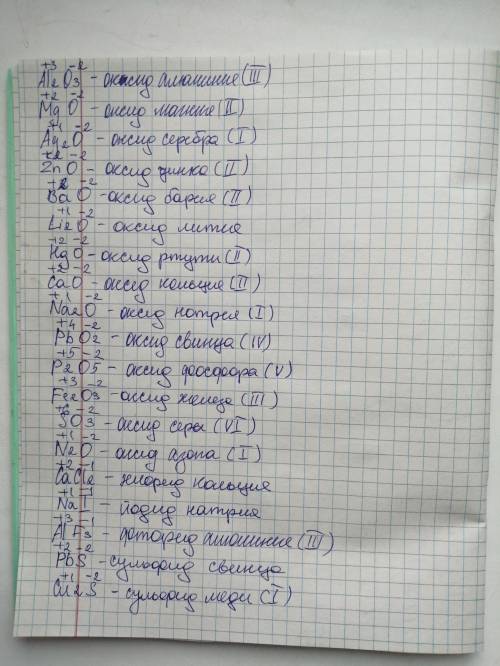 +3 -2
Al2O3 - оксид алюминия (III)
+2 -2
MgO - оксид магния (II)
+1 -2
Ag2O - оксид серебра (I)
+2 -2
ZnO - оксид цинка (II)
+2 -2
BaO - оксид бария (II)
+1 -2
Li2O - оксид лития
+2 -2
HgO - оксид ртути (II)
+2 -2
CaO - оксид кольция (II)
+1 -2
Na2O - оксид натрия (I)
+4 -2
PbO2 - оксид свинца (IV)
+5 -2
P2O5 - оксид фосфора (V)
+3 -2
Fe2O3 - оксид железа (III)
+6 -2
SO3 - оксид серы (VI)
+1 -2
N2O - оксид азота (I)
+2 -1
CaCl2 - хлорид кольция
+1 -1
NaI - йодид натрия
+3 -1
AlF3 - фторид алюминия (III)
+2 -2
PbS - сульфид свинца
+1 -2
Cu2S - сульфид меди (I)